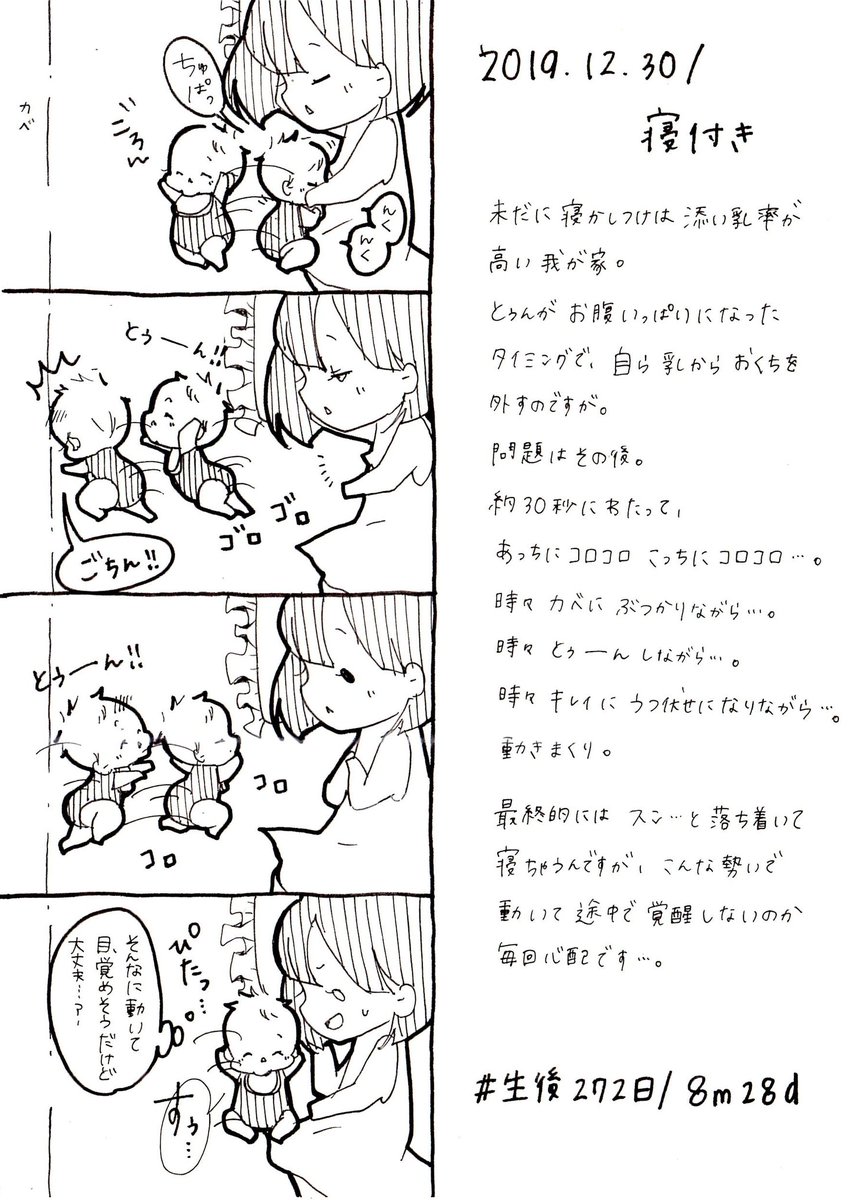 2019.12.30/
寝付き
未だに寝かしつけは添い乳率が
高い我が家。
とぅんがお腹いっぱりになった
タイミングで、自ら乳からおくちを
外すのですが。
問題はその後。
約30秒にわたって、
あっちにコロコロこっちにコロコロ…。
時々カベにぶつかりながら…。
時々とぅーんしながら…。
時々キレイにうつ伏せになりながら…。
動きまくり。
最終的にはスン…と落ち着いて
寝ちゃうんですが、こんな勢いで
動いて途中で覚醒しないのか
毎回心配です…。
#生後272日/8m28d
ちゅぱっ
カベ
ころん
んく
んく
とぅーん!!
ゴロ
ゴロ
ごちん!!
とぅーん!!
コロ
コロ
ぴたっ…
そんなに動いて
目、覚めそうだけど
大丈夫…?
すぅ…